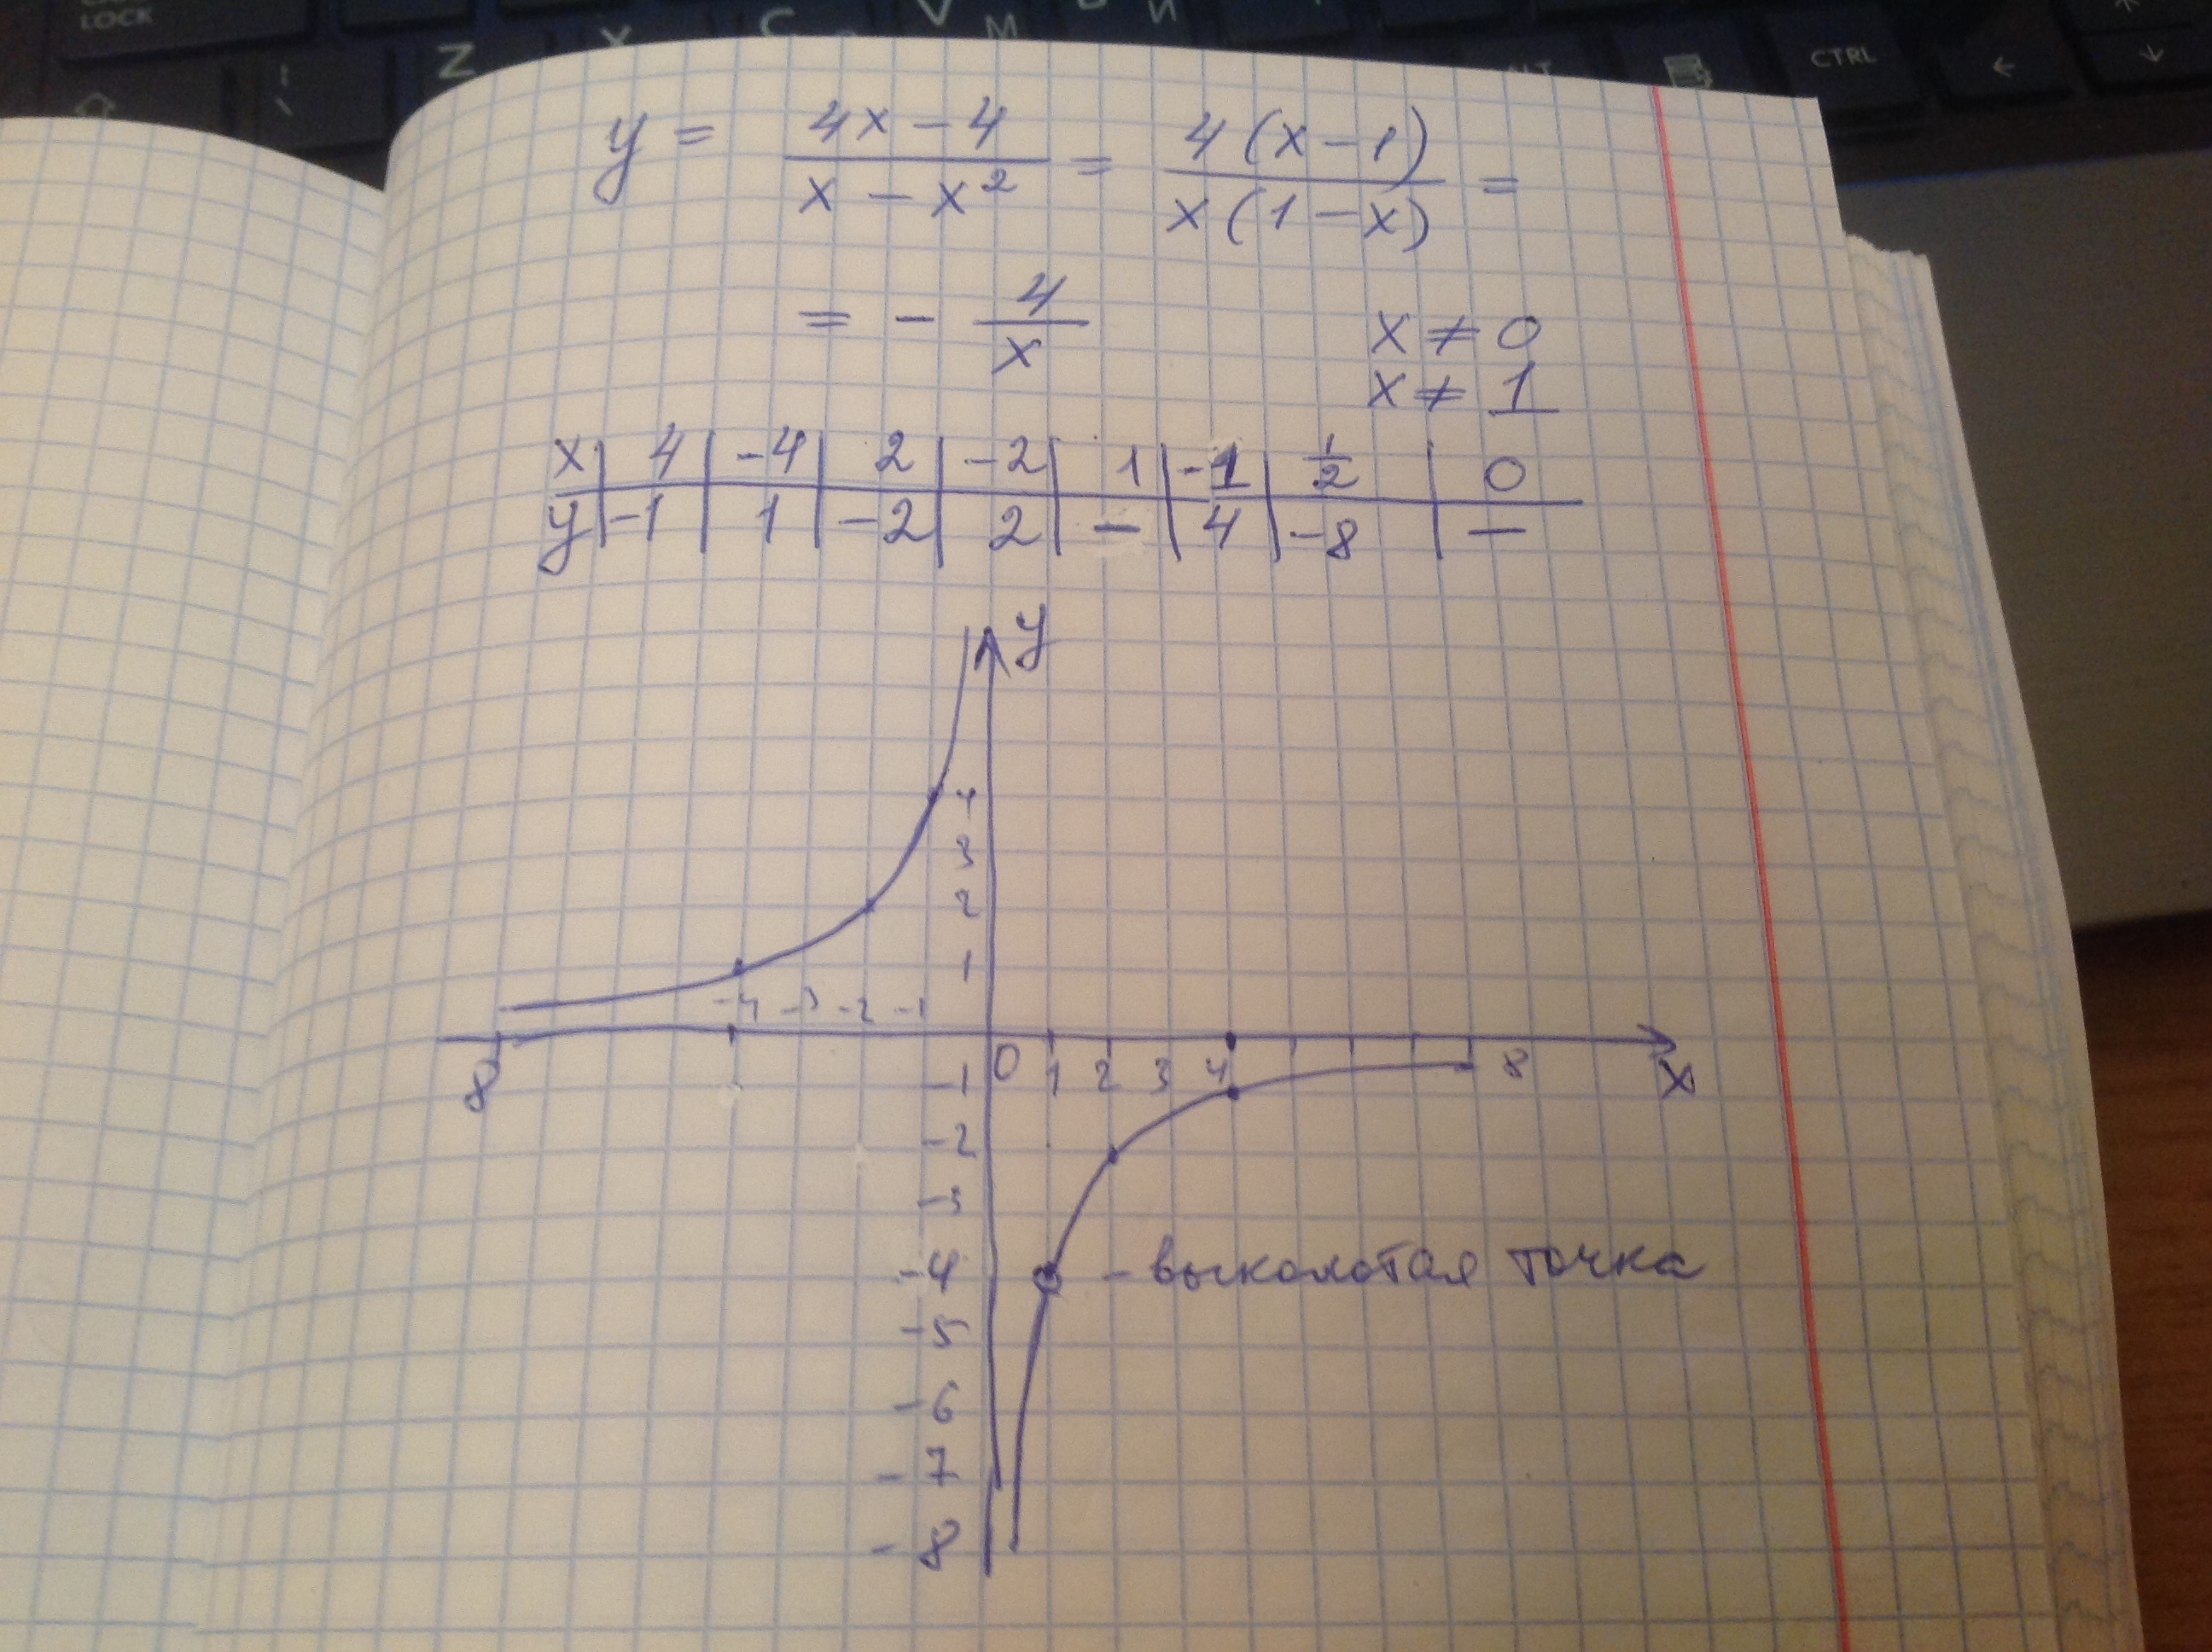 LOCK
Z X C V M И
ALT CTRL
y = (4x - 4)/(x - x²) = (4(x - 1))/(x(1 - x)) =
= - 4/x
x ≠ 0
x ≠ 1
x | 4 | -4 | 2 | -2 | 1 | -1 | 1/2 | 0
y | -1 | 1 | -2 | 2 | – | 4 | -8 | –
y
4
3
2
1
-4 -3 -2 -1
8 0 1 2 3 4 8 x
-1
-2
-3
-4 - выколотая точка
-5
-6
-7
-8